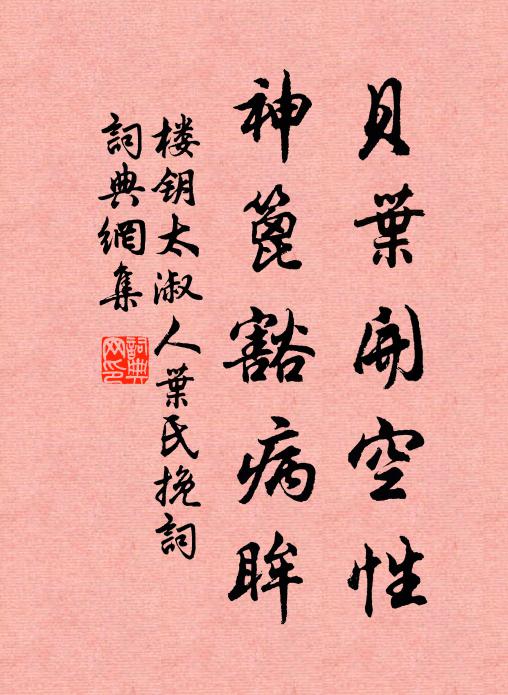 貝葉開空性
神篦豁病眸
楼钥太淑人葉氏挽詞
詞典網集
詞典网印